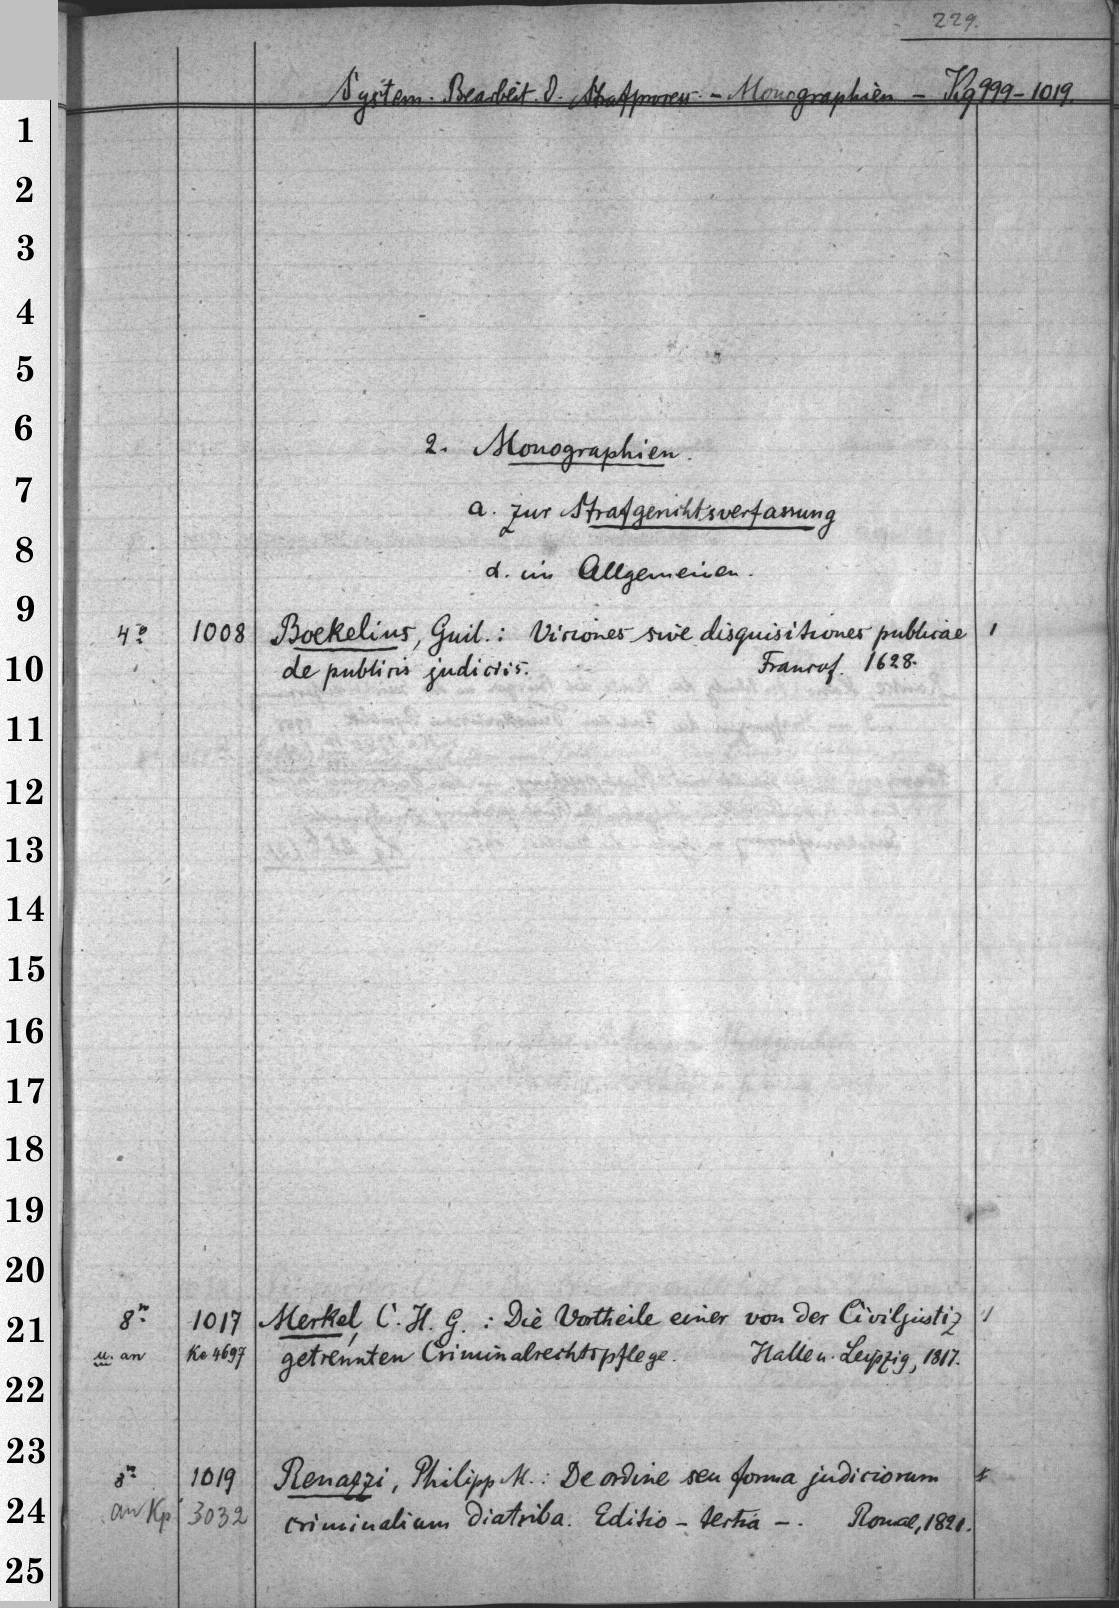 229.
System. Bearbeit. d. Strafprocess - Monographien - Kg 999-1019.
1
2
3
4
5
6
2. Monographien.
7
a. zur Strafgerichtsverfassung
8
α. im Allgemeinen.
9
4º 1008 Boekelius, Guil.: Visiones sive disquisitiones publicae 1
10
de publicis judiciis. Francof. 1628.
11
12
13
14
15
16
17
18
19
20
21
8º 1017 Merkel, C. H. G.: Die Vortheile einer von der Civiljustiz 1
u. an Ke 4697 getrennten Criminalrechtspflege. Halle u. Leipzig, 1817.
22
23
8º 1019 Renazzi, Philipp M.: De ordine seu forma judiciorum
24
an Kp 3032 criminalium diatriba. Editio - tertia -. Romae, 1821.
25